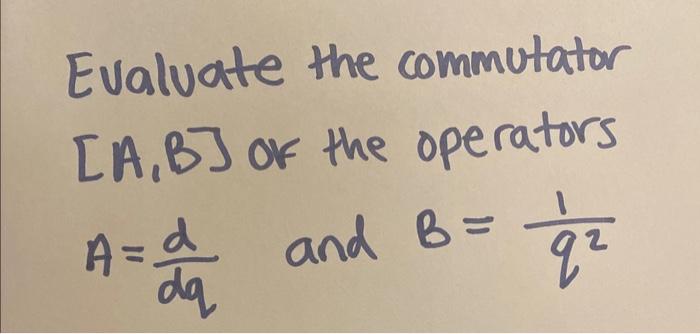 Evaluate the commutator
[A,B] of the operators
A = d/dq and B = 1/q²